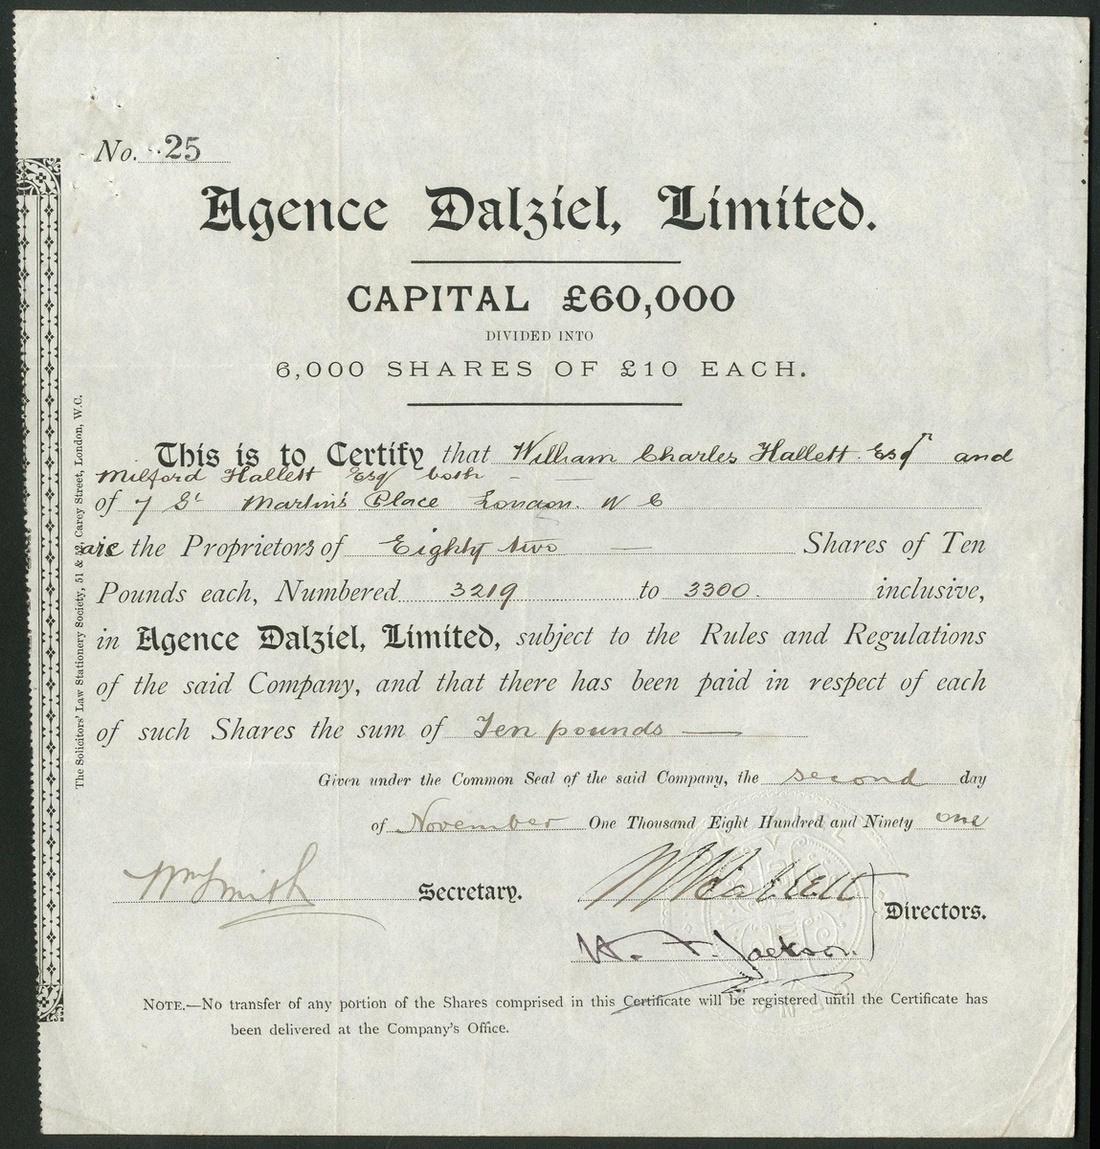 No. 25
Agence Dalziel, Limited.
CAPITAL £60,000
DIVIDED INTO
6,000 SHARES OF £10 EACH.
This is to Certify that William Charles Hallett Esqr and
Milford Hallett Esq both
of 7 St Martin's Place London. W C
are the Proprietors of Eighty two Shares of Ten
Pounds each, Numbered 3219 to 3300. inclusive,
in Agence Dalziel, Limited, subject to the Rules and Regulations
of the said Company, and that there has been paid in respect of each
of such Shares the sum of Ten pounds
Given under the Common Seal of the said Company, the second day
of November One Thousand Eight Hundred and Ninety one
Wm Smith Secretary.
Hallett
Directors.
Jackson
NOTE.—No transfer of any portion of the Shares comprised in this Certificate will be registered until the Certificate has
been delivered at the Company's Office.
The Solicitors' Law Stationery Society, 51 & 52, Carey Street, London, W.C.